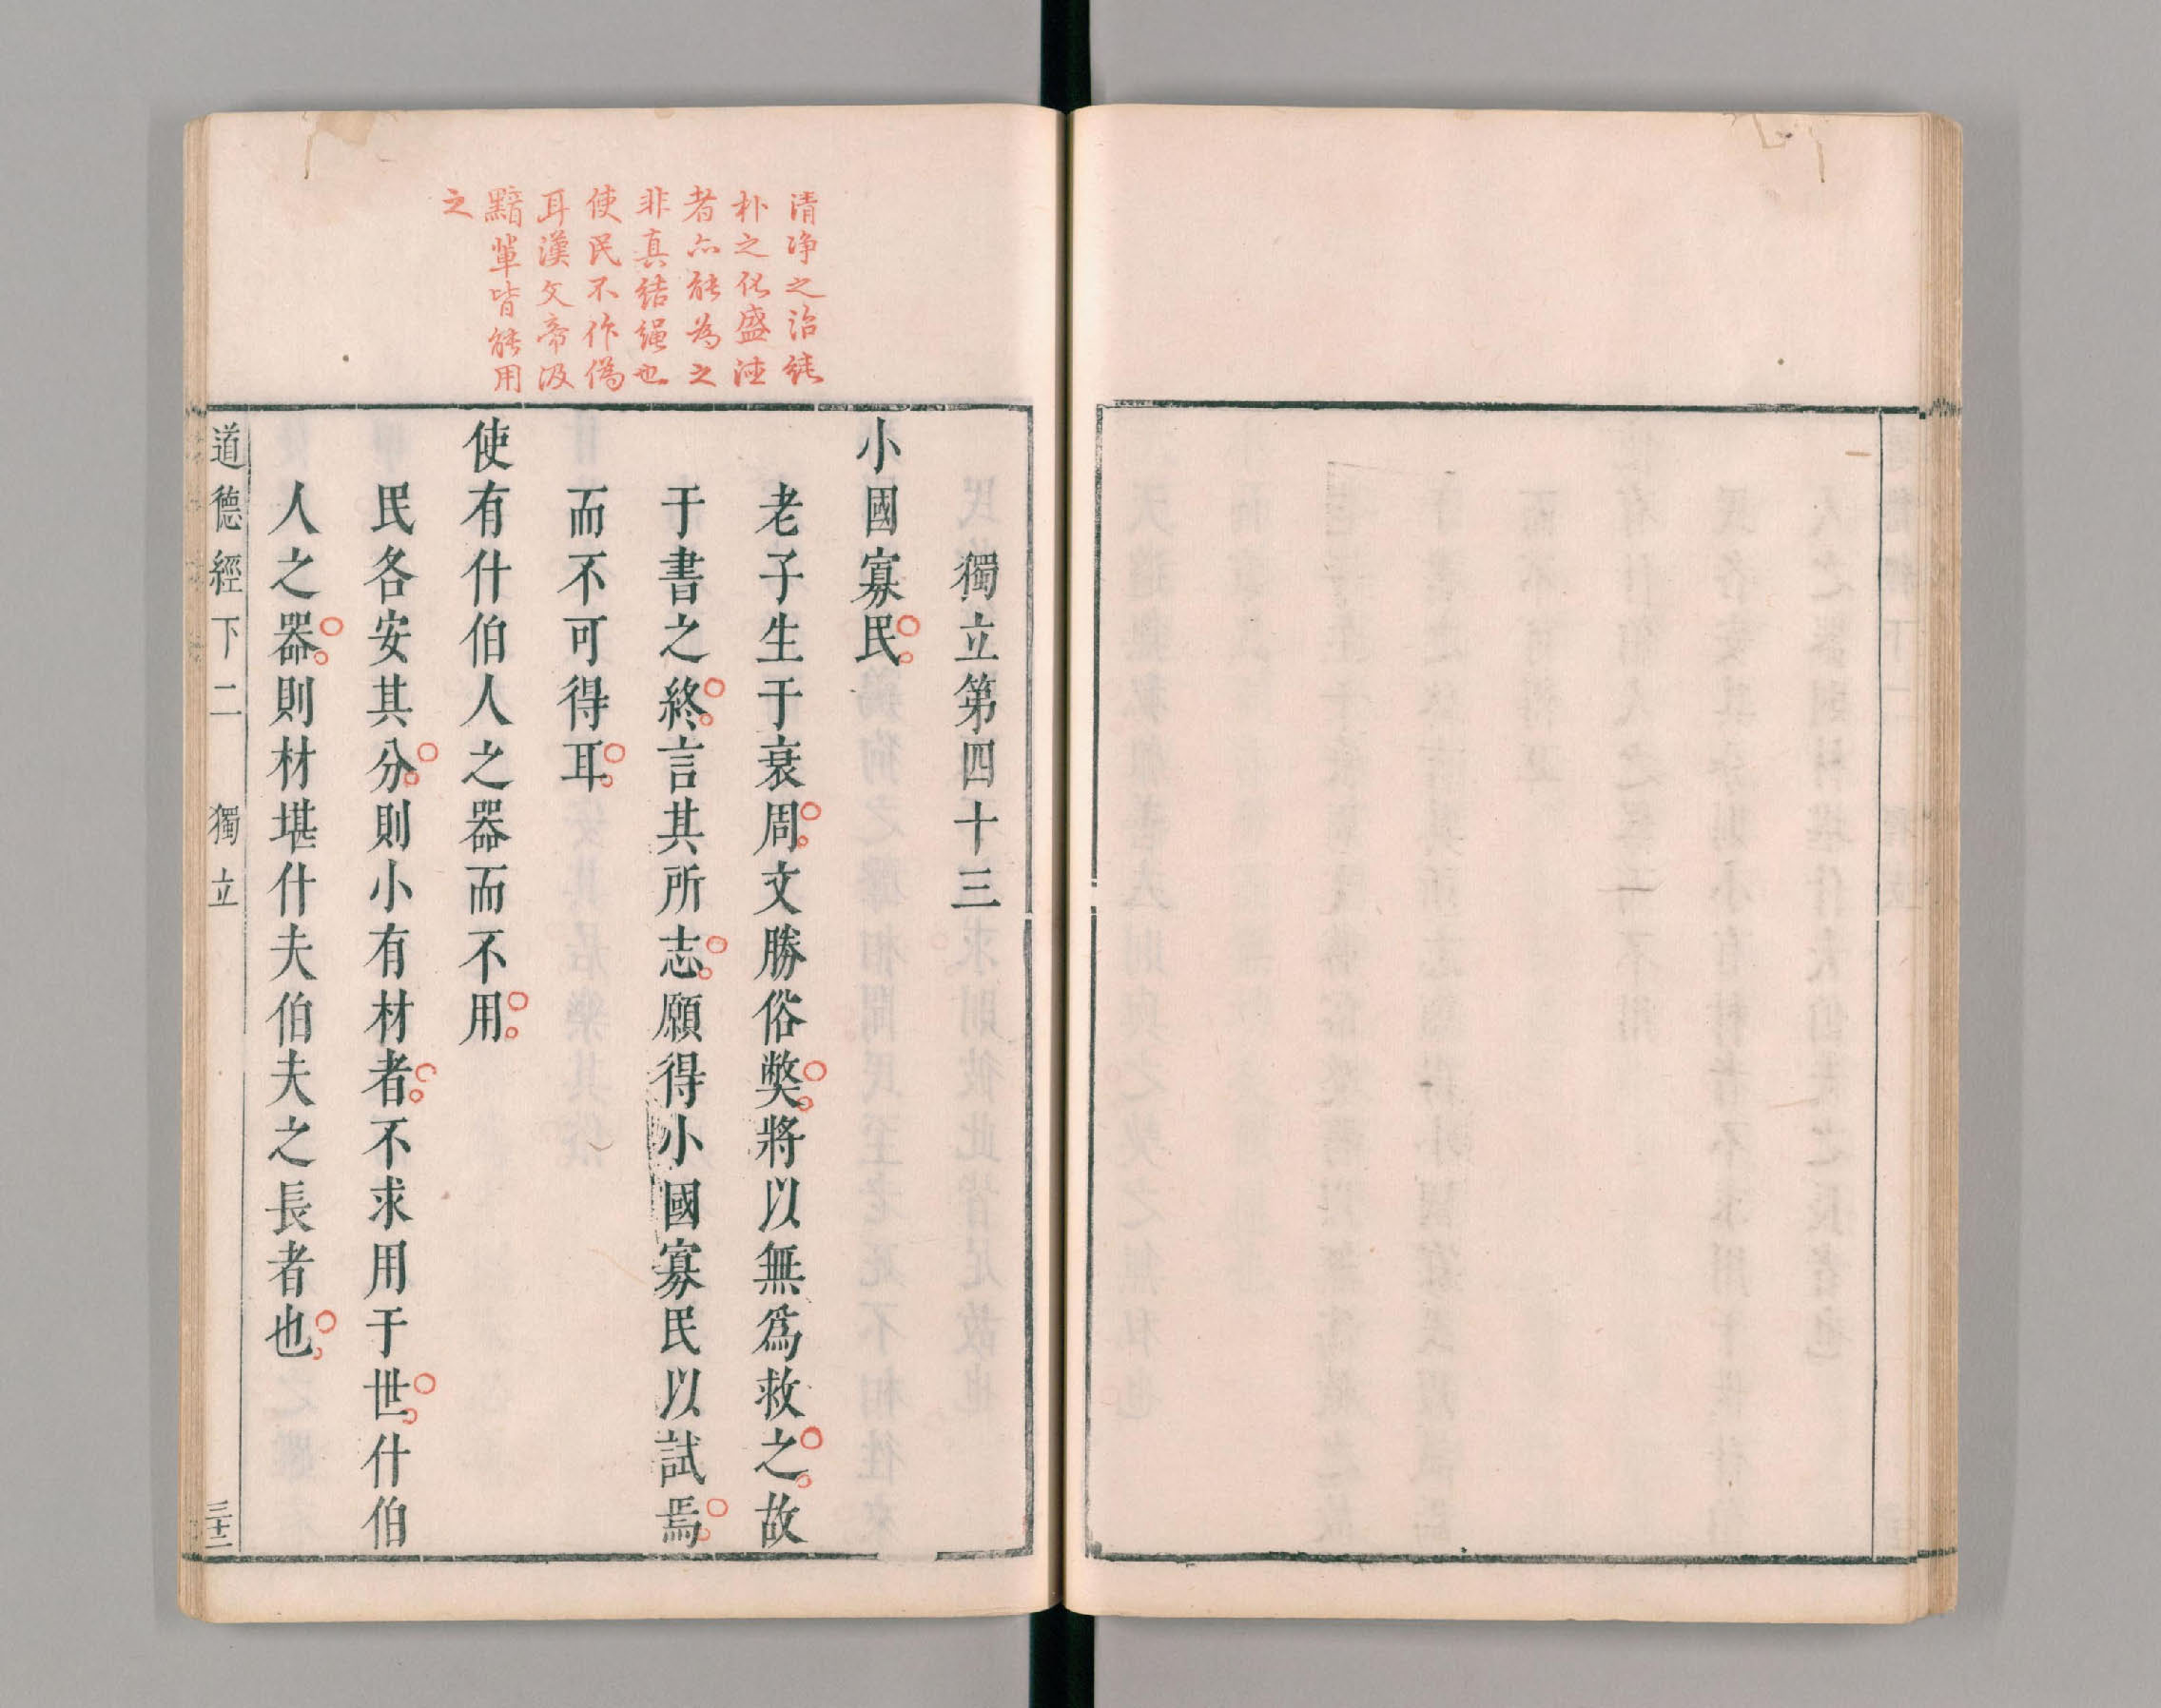 清净之治純
朴之化盛德
者亦能為之
非真結繩也
使民不作偽
耳漢文帝汲
黯輩皆能用
之
獨立第四十三
小國寡民
老子生于衰周文勝俗獘將以無爲救之故
于書之終言其所志願得小國寡民以試焉
而不可得耳
使有什伯人之器而不用
民各安其分則小有材者不求用于世什伯
人之器則材堪什夫伯夫之長者也
道德經下二 獨立 三十二